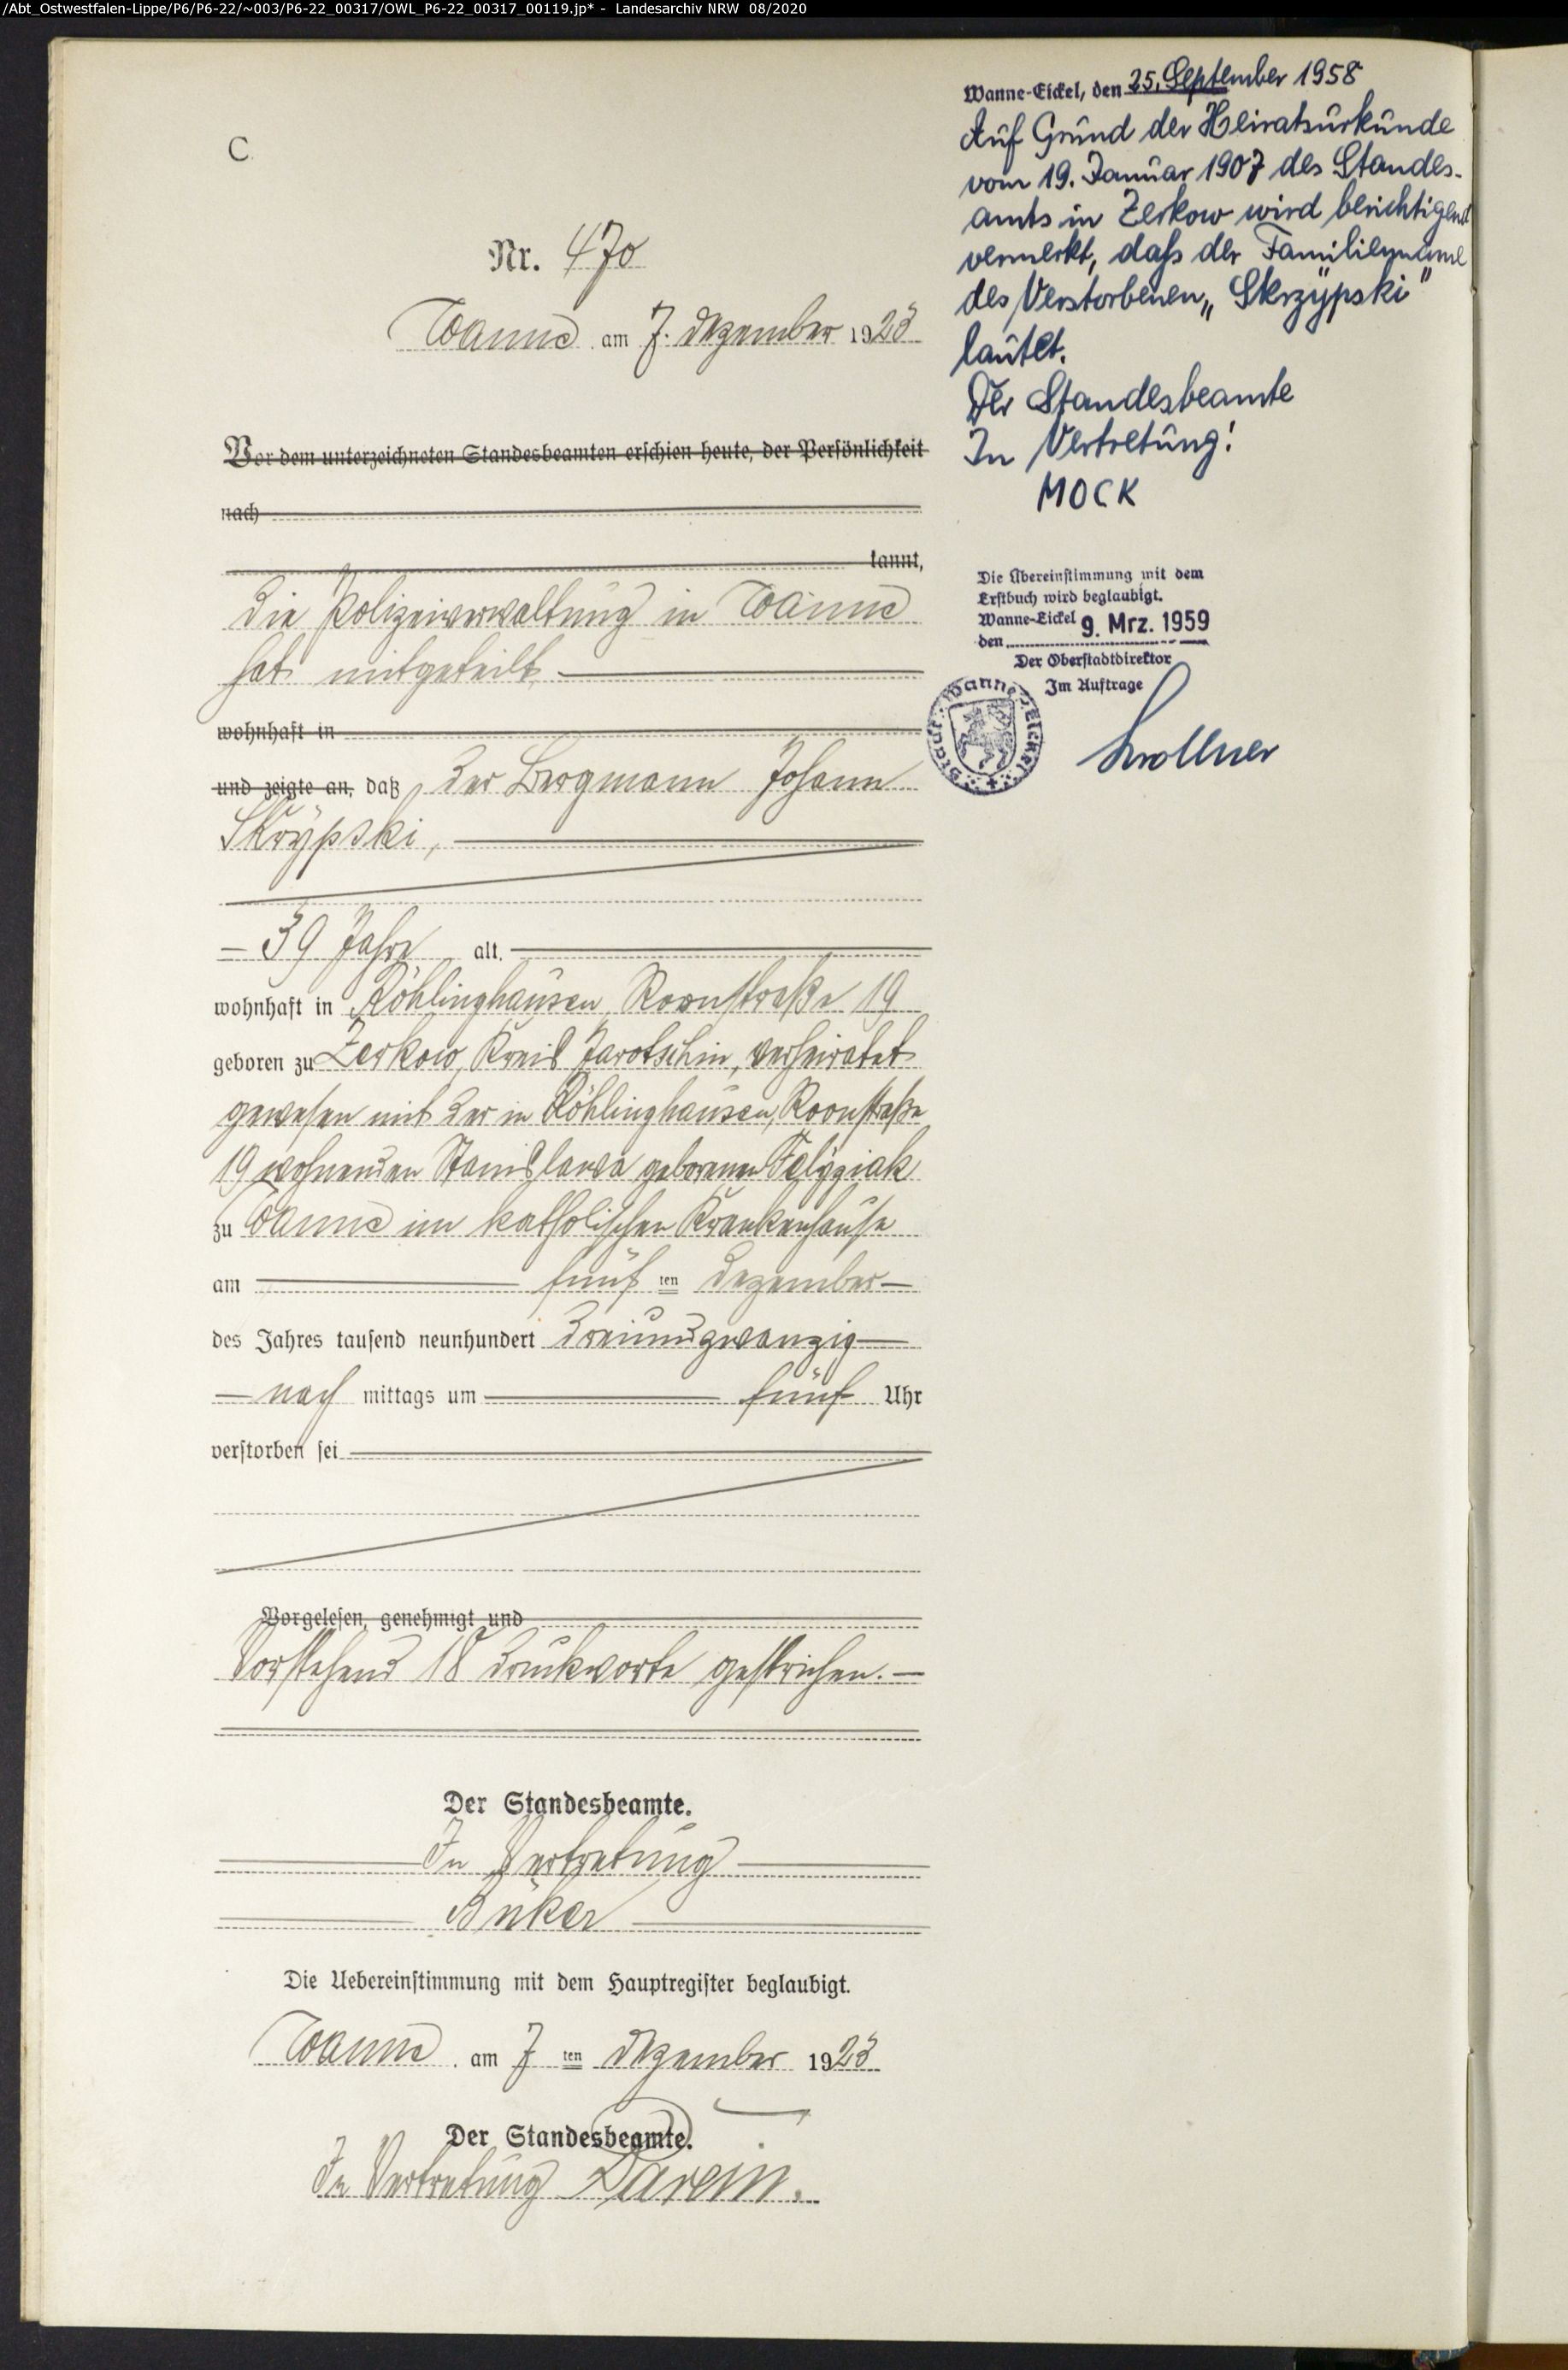 /Abt_Ostwestfalen-Lippe/P6/P6-22/~003/P6-22_00317/OWL_P6-22_00317_00119.jp* - Landesarchiv NRW 08/2020
C.
Nr. 470
Wanne am 7. Dezember 1923
Vor dem unterzeichneten Standesbeamten erschien heute, der Persönlichkeit
nach
kannt,
Die Polizeiverwaltung in Wanne
hat mitgeteilt,
wohnhaft in
und zeigte an, daß der Bergmann Johann
Skrÿpski,
39 Jahre alt,
wohnhaft in Röhlinghausen, Roonstraße 19
geboren zu Zerkow, Kreis Jarotschin, verheiratet
gewesen mit der in Röhlinghausen, Roonstraße
19 wohnenden Stanislawa geborenen
zu Wanne im katholischen Krankenhause
am fünf ten Dezember
des Jahres tausend neunhundert dreiundzwanzig
nach mittags um fünf Uhr
verstorben sei
Vorgelesen, genehmigt und
Vorstehend 18 Druckworte gestrichen.
Der Standesbeamte.
In Vertretung
Büker
Die Uebereinstimmung mit dem Hauptregister beglaubigt.
Wanne, am 7 ten Dezember 1923
Der Standesbeamte.
In Vertretung
Wanne-Eickel, den 25. September 1958
Auf Grund der Heiratsurkunde
vom 19. Januar 1907 des Standes-
amts in Zerkow wird berichtigend
vermerkt, daß der Familienname
des Verstorbenen „Skrzÿpski"
lautet.
Der Standesbeamte
In Vertretung!
MOCK
Die Übereinstimmung mit dem
Erstbuch wird beglaubigt.
Wanne-Eickel
den 9. Mrz. 1959
Der Oberstadtdirektor
Im Auftrage
Stadt Wanne-Eickel